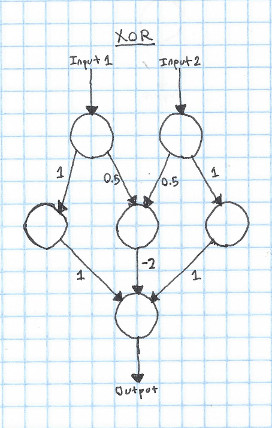 XOR
Input 1 Input 2
1 0.5 0.5 1
1 -2 1
Output